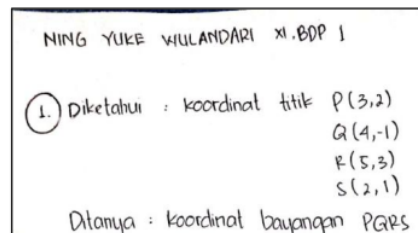 NING YUKE WULANDARI XI.BDP 1
1. Diketahui : koordinat titik P(3,2)
Q(4,-1)
R(5,3)
S(2,1)
Ditanya : koordinat bayangan PQRS